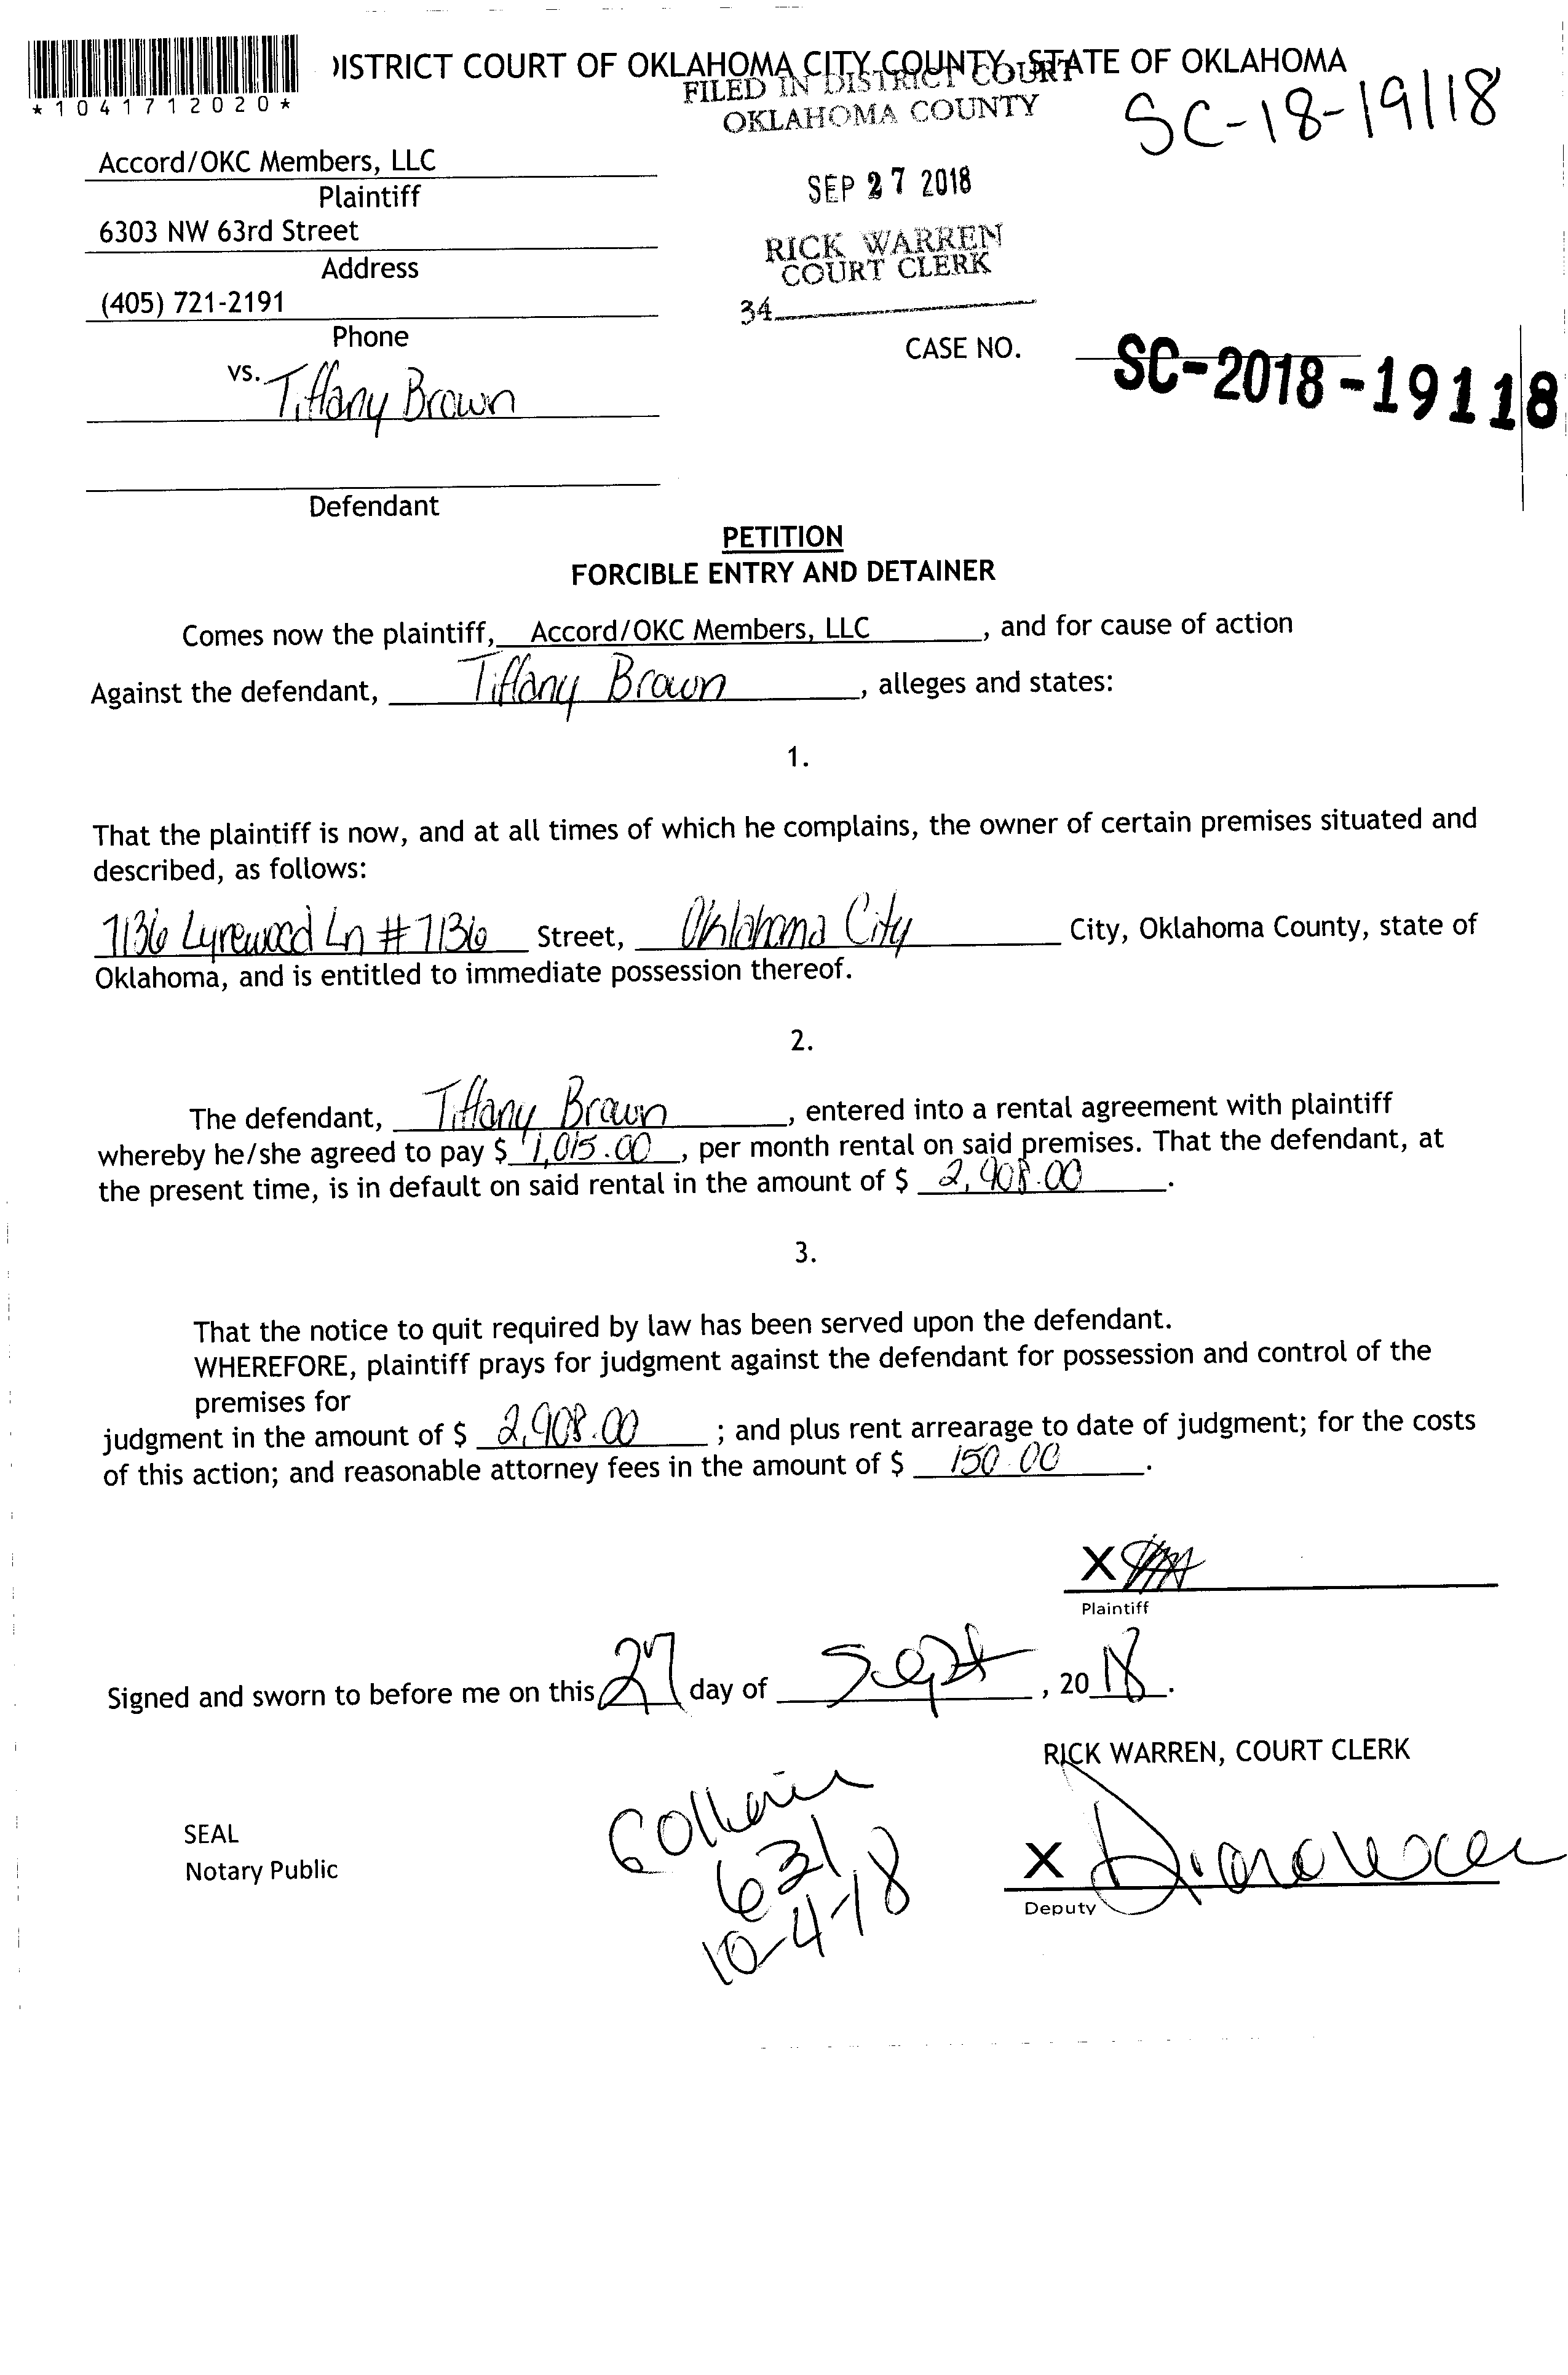 *1041712020*
ISTRICT COURT OF OKLAHOMA CITY COUNTY, STATE OF OKLAHOMA
FILED IN DISTRICT COURT
OKLAHOMA COUNTY
SC-18-19118
Accord/OKC Members, LLC
Plaintiff
SEP 27 2018
6303 NW 63rd Street
Address
RICK WARREN
COURT CLERK
(405) 721-2191
34
Phone
CASE NO. SC-2018-19118
vs. Tiffany Brown
Defendant
PETITION
FORCIBLE ENTRY AND DETAINER
Comes now the plaintiff, Accord/OKC Members, LLC, and for cause of action
Against the defendant, Tiffany Brown, alleges and states:
1.
That the plaintiff is now, and at all times of which he complains, the owner of certain premises situated and
described, as follows:
7136 Lyrewood Ln #7136 Street, Oklahoma City City, Oklahoma County, state of
Oklahoma, and is entitled to immediate possession thereof.
2.
The defendant, Tiffany Brown, entered into a rental agreement with plaintiff
whereby he/she agreed to pay $ 1,015.00, per month rental on said premises. That the defendant, at
the present time, is in default on said rental in the amount of $ 2,908.00.
3.
That the notice to quit required by law has been served upon the defendant.
WHEREFORE, plaintiff prays for judgment against the defendant for possession and control of the
premises for
judgment in the amount of $ 2,908.00 ; and plus rent arrearage to date of judgment; for the costs
of this action; and reasonable attorney fees in the amount of $ 150.00.
X
Plaintiff
Signed and sworn to before me on this 27 day of Sept, 20 18.
RICK WARREN, COURT CLERK
SEAL
Notary Public
631
10-4-18
X
Deputy